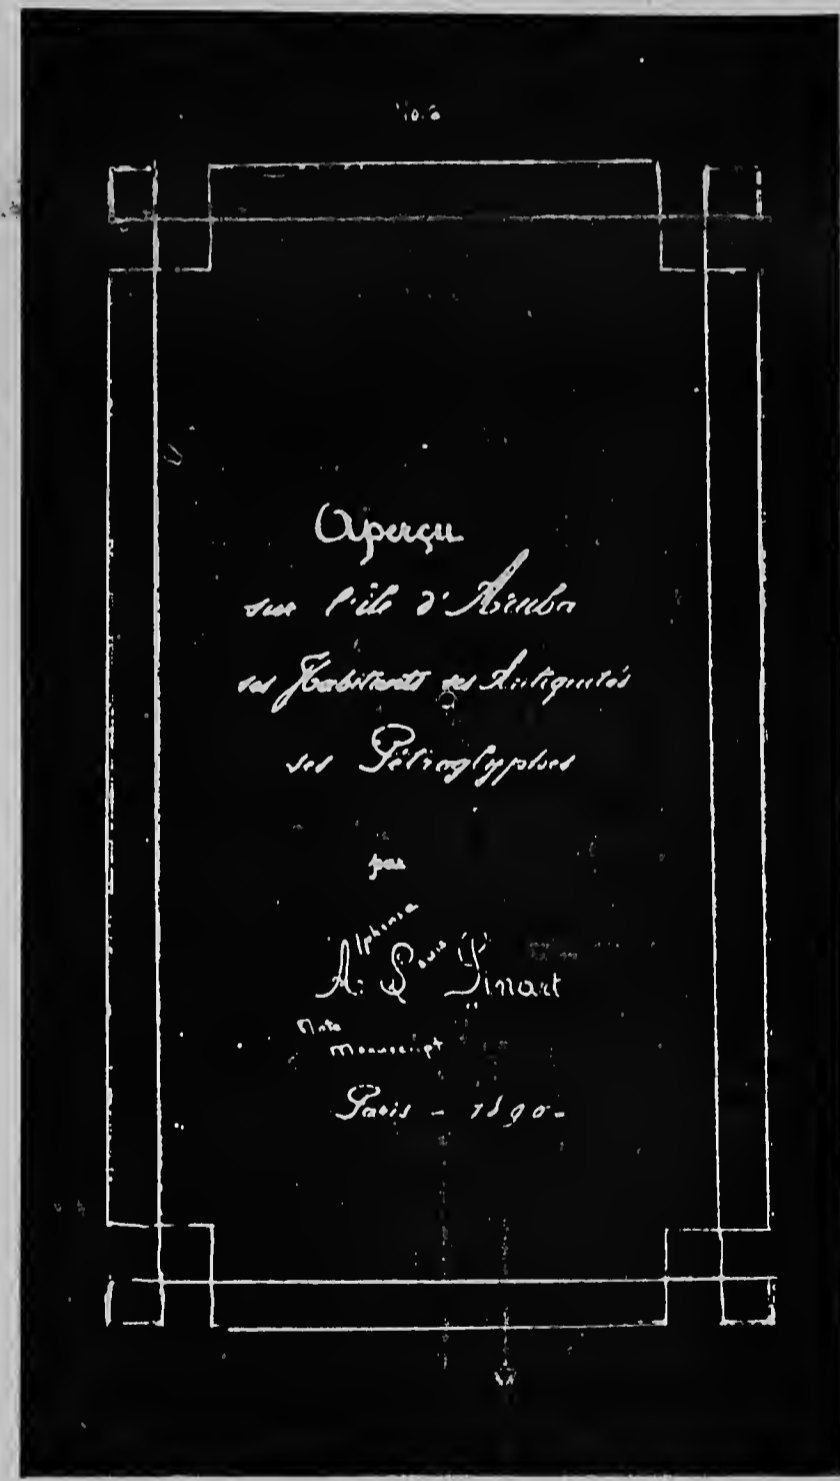 No. 6
Aperçu
sur l'île d'Aruba
ses Habitants ses Antiquités
ses Pétroglyphes
par
Alphonse Louis
A. L. Pinart
Note
Manuscript
Paris - 1890-